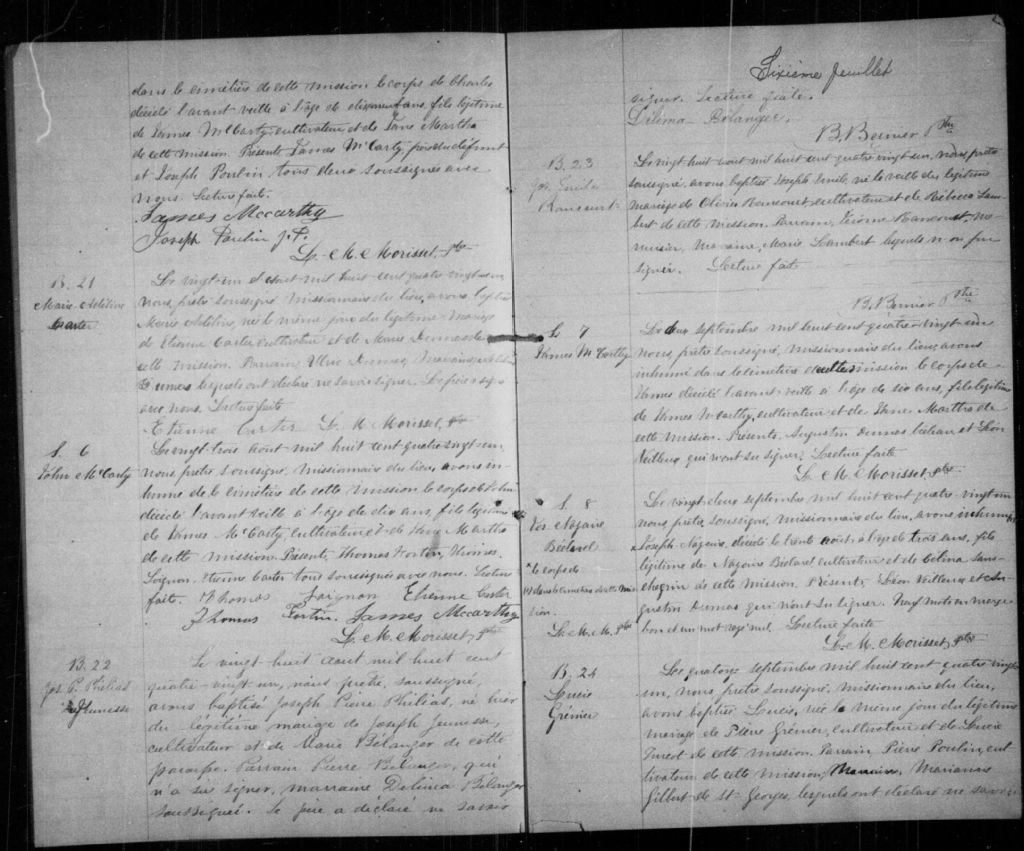 dans le cimétière de cette mission le corps de Charles
décédé l'avant veille à l'âge de ans, fils légitime
de James McCarty, cultivateur et de Jane Martha
de cette mission. Présents James McCarty, père du défunt
et Joseph Poulin tous deux soussignés avec
nous. Lecture faite.
James Mccarthy
Joseph Poulin J.P.
L. M. Morisset, Ptre
B. 21
Marie Adéline
Carter
Le vingt-un et août mil huit cent quatre vingt-un
nous, prêtre soussigné missionnaire du lieu, avons baptisé
Marie Adéline, née le même jour du légitime mariage
de Etienne Carter cultivateur et de Marie Dumas de
cette mission. Parrain, Dumas, Marraine,
Dumas lesquels ont déclaré ne savoir signer. Le père a signé
avec nous. Lecture faite
Etienne Carter L. M. Morisset, Ptre
S. 6
John McCarty
Le vingt trois août mil huit cent quatre vingt-un,
nous, prêtre soussigné, missionnaire du lieu, avons in-
humé de le cimétière de cette mission le corps de John
décédé l'avant veille à l'âge de dix ans, fils légitime
de James McCarty, cultivateur et de Jane Martha
de cette mission. Présents, Thomas Fortin, Thomas
Loignon, Etienne Carter tous soussignés avec nous. Lecture
faite. Thomas Loignon Etienne Carter
Thomas Fortin James Mccarthy
L. M. Morisset, Ptre
B. 22
Jos. P. Philias
Jeunesse
Le vingt huit août mil huit cent
quatre-vingt un, nous prêtre, soussigné,
avons baptisé Joseph Pierre Philias, né hier
du légitime mariage de Joseph Jeunesse,
cultivateur et de Marie Bélanger de cette
paroisse. Parrain Pierre Bélanger, qui
n'a su signer, marraine Délima Bélanger
soussignée. Le père a déclaré ne savoir
Sixième feuillet
signer. Lecture faite.
Délima Bélanger.
B. Bernier Ptre
B. 23
Jos. Emile
Rancourt
Le vingt huit août mil huit cent quatre vingt-un, nous, prêtre
soussigné, avons baptisé Joseph Emile, né la veille du légitime
mariage de Olivier Rancourt, cultivateur et de Rébecca Lam-
bert de cette mission. Parrain, Jérôme Rancourt, me-
nuisier, Marraine, Marie Lambert lesquels n'ont su
signer. Lecture faite
B. Bernier Ptre
S. 7
James McCarthy
Le deux septembre mil huit cent quatre-vingt-un
nous, prêtre soussigné, missionnaire du lieu, avons
inhumé dans le cimetière de cette mission le corps de
James décédé l'avant-veille à l'âge de six ans, fils légitime
de James McCarthy, cultivateur et de Jane Martha de
cette mission. Présents, Augustin Dumas bedeau et Léon
Veilleux qui n'ont su signer. Lecture faite
L. M. Morisset, Ptre
S. 8
Jos. Nazaire
Bédard
x le corps de
(x) dans le cimetière de cette mis-
sion.
L. M. M. Ptre
Le vingt-deux septembre mil huit cent quatre vingt-un
nous, prêtre, soussigné, missionnaire du lieu, avons inhumé
x Joseph Nazaire, décédé le trente août à l'âge de trois ans, fils
légitime de Nazaire Bédard cultivateur et de Célina Lan-
de cette mission. Présents, Léon Veilleux et Au-
gustin Dumas qui n'ont su signer. Neuf mots en marge
bon et un mot rayé nul. Lecture faite
L. M. Morisset, Ptre
B. 24
Lucie
Grénier
Le quatorze septembre mil huit cent quatre vingt
un, nous, prêtre soussigné, missionnaire du lieu,
avons baptisé Lucie, née le même jour du légitime
mariage de Pierre Grénier, cultivateur et de Lucie
de cette mission. Parrain, Pierre Poulin, cul-
tivateur de cette mission, Marraine, Marianne
Gilbert de St-Georges, lesquels ont déclaré ne savoir